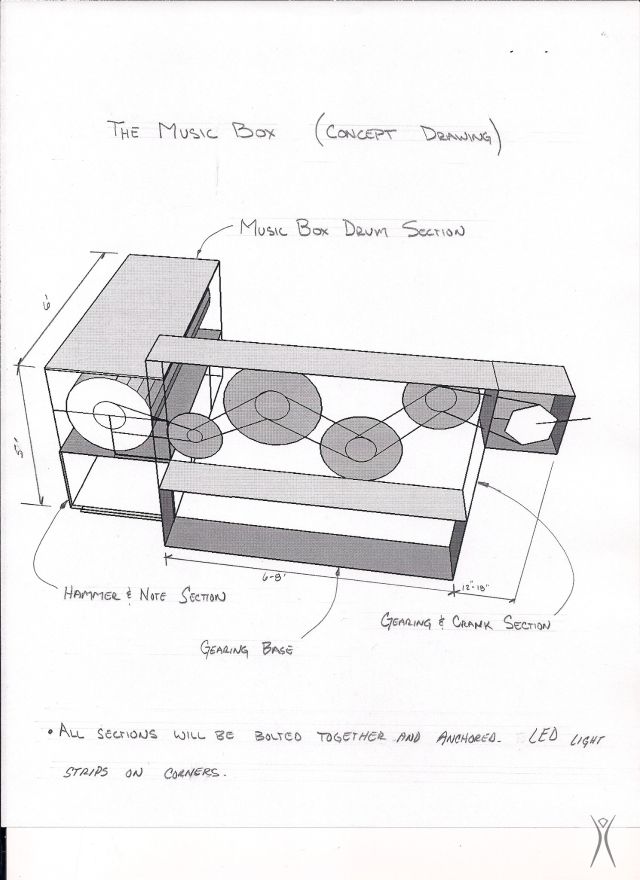 THE MUSIC BOX (CONCEPT DRAWING)
MUSIC BOX DRUM SECTION
6'
6-8'
12"-18"
HAMMER & NOTE SECTION
GEARING & CRANK SECTION
GEARING BASE
• ALL SECTIONS WILL BE BOLTED TOGETHER AND ANCHORED. LED LIGHT
STRIPS ON CORNERS.